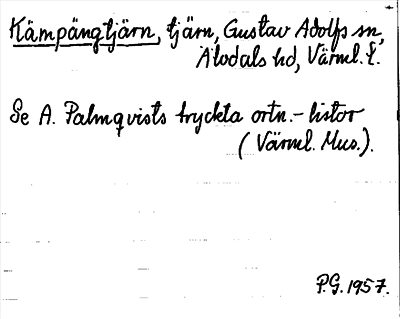 Kämpängtjärn, tjärn, Gustav Adolfs sn,
Älvdals hd, Värml. L.
Se A. Palmqvists tryckta ortn.-listor
(Värml. Mus.).
P.G. 1957.